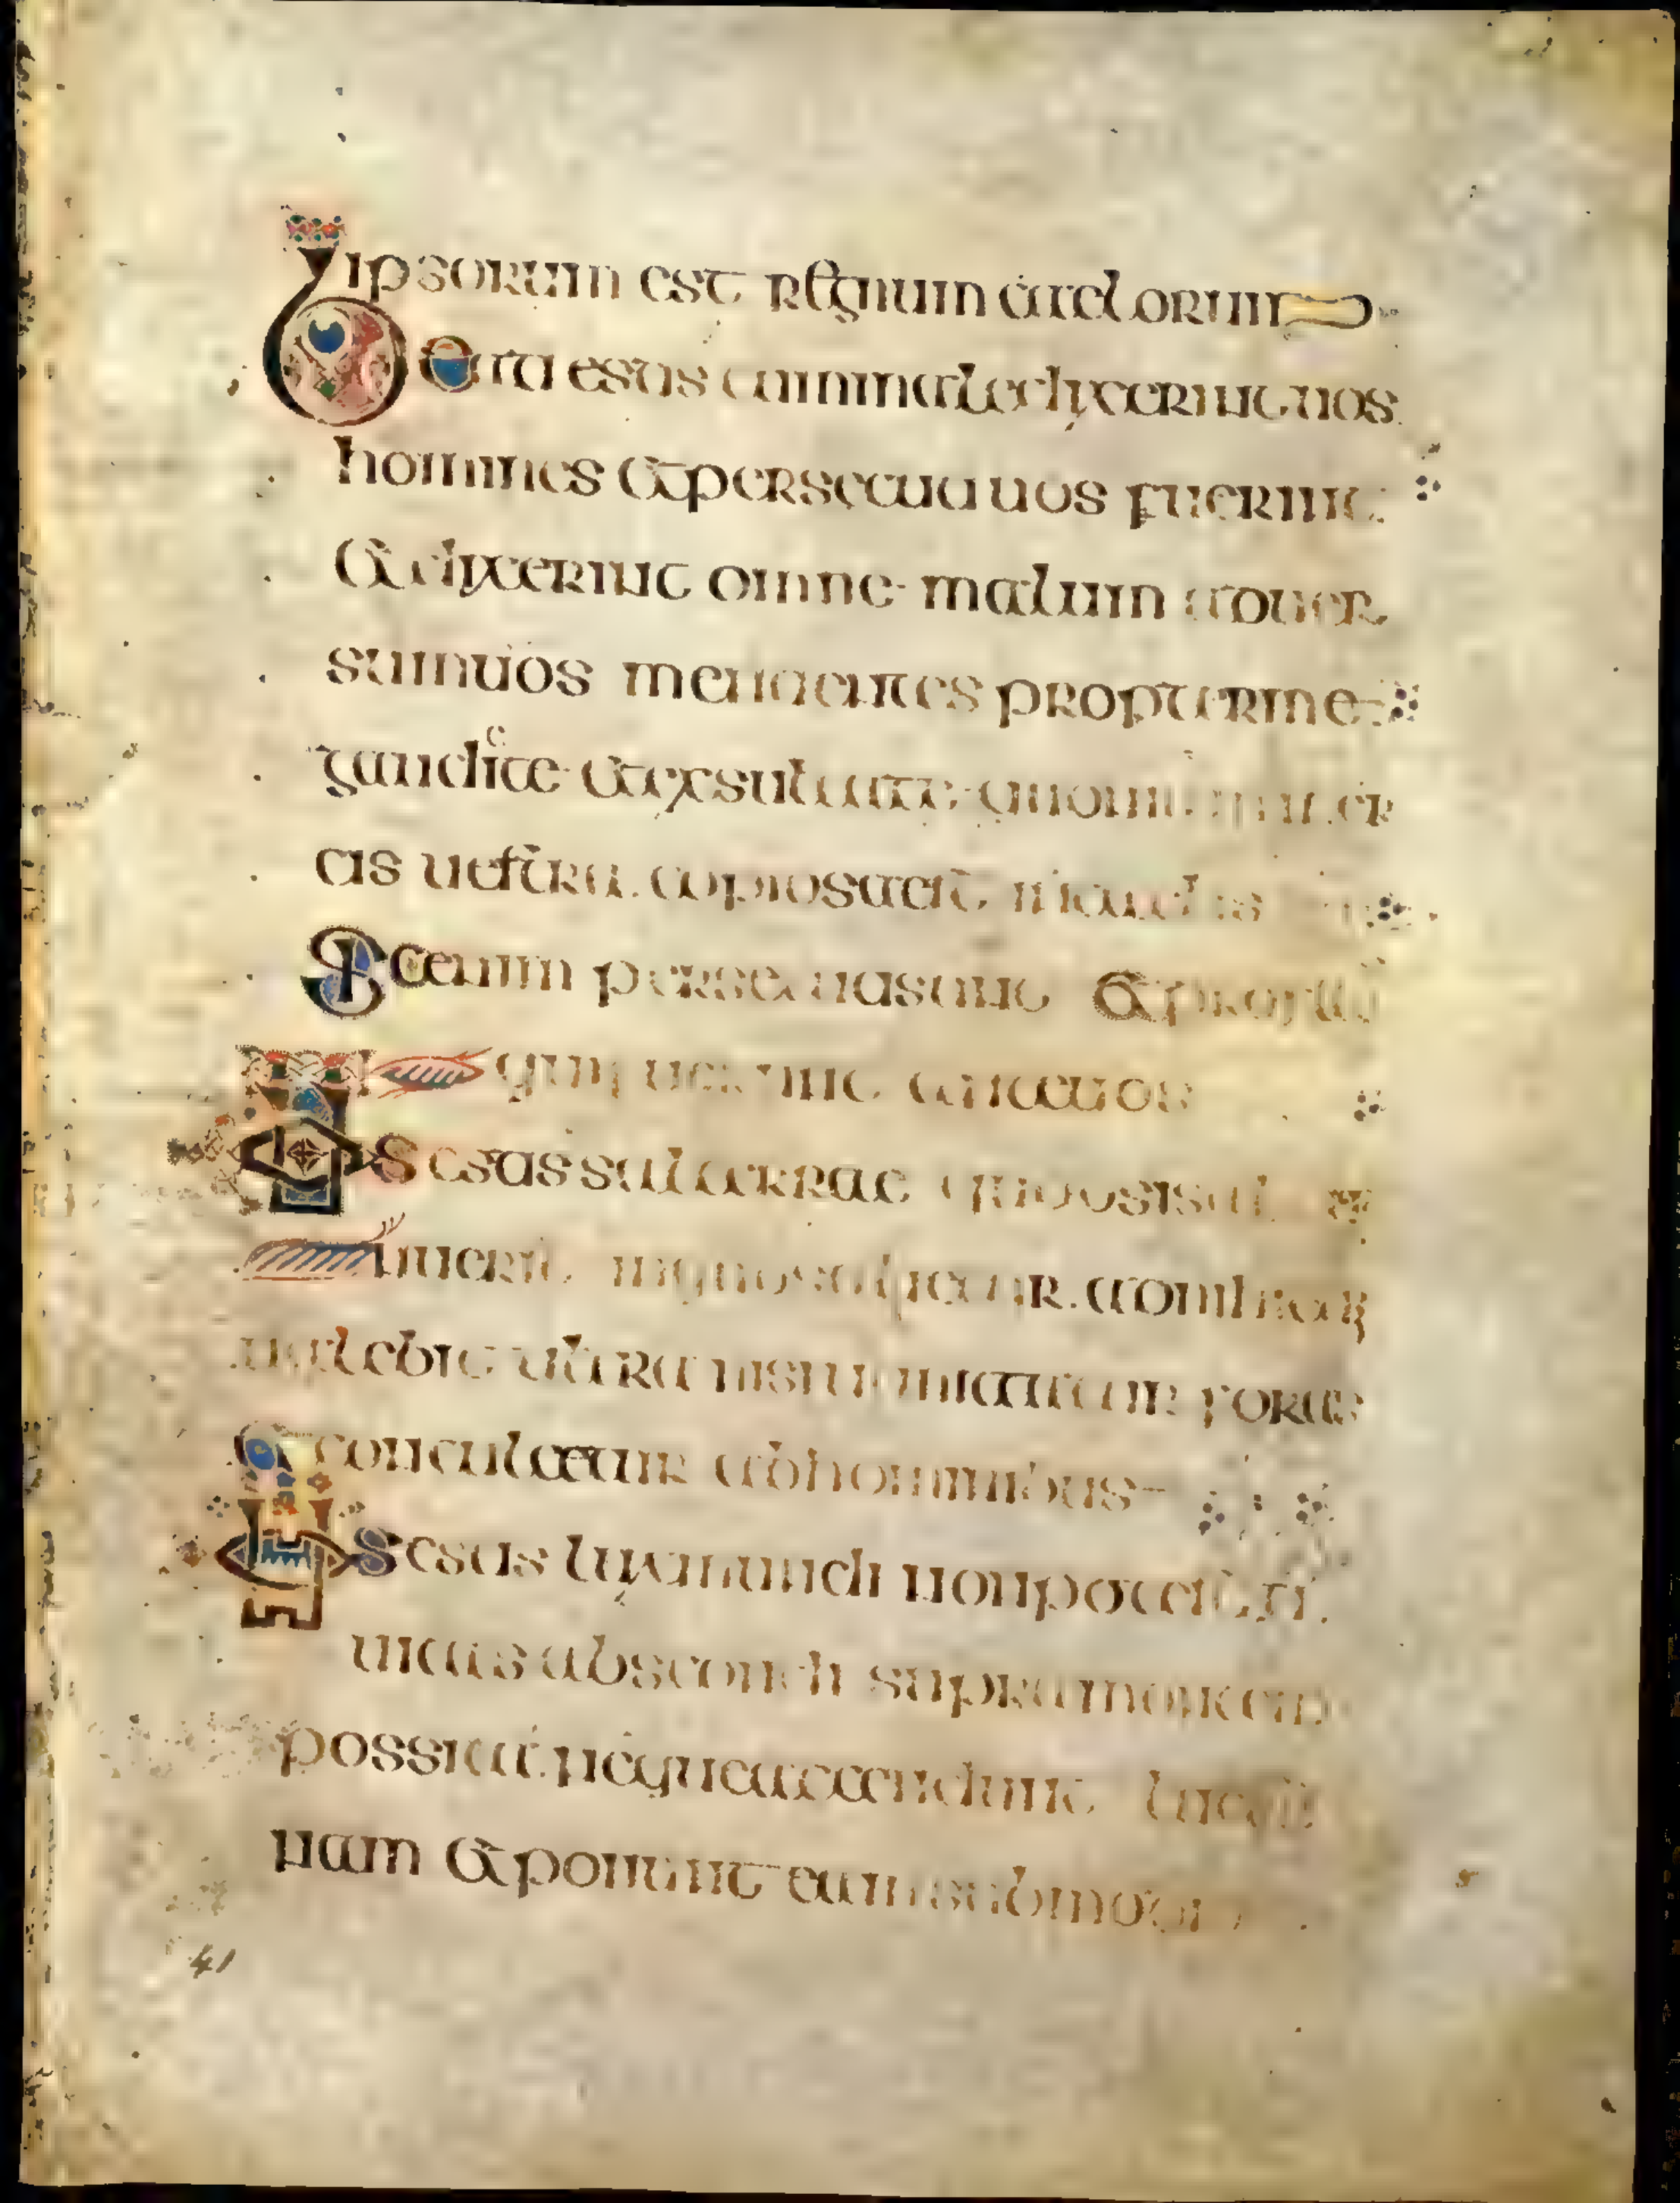 ipsorum est regnum caelorum
Beati estis cum maledixerint uos
homines et persecuti uos fuerint
Et dixerint omne malum aduer
sum uos mentientes propter me
gaudete et exsultate quoniam mer
cis uestra copiosa est in caelis
Sic enim persecuti sunt et prof
qui fuerunt ante uos
Uos estis sal terrae quod si sal
euanuerit in quo salietur ad nihilum
ualebit ultra nisi ut mittatur foras
et conculcetur ab hominibus
Uos estis lux mundi non potest ci
uitas abscondi supra montem
possita neque accendunt lucer
nam et ponunt eam sub modio
41